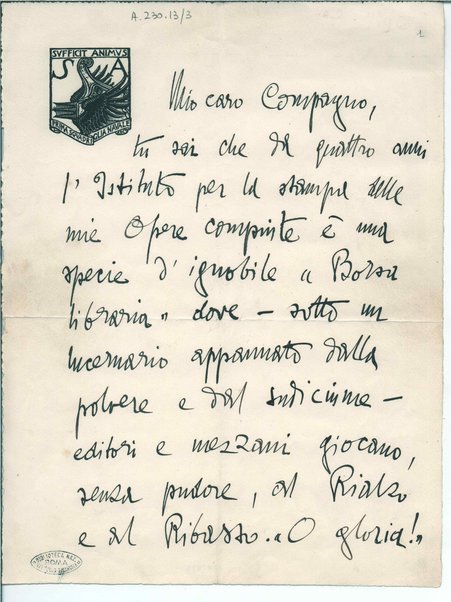 A.230.13/3
1
SVFFICIT ANIMVS
S A
PRIMA SQVADRIGLIA NAVALE
Mio caro Compagno,
tu sai che da quattro anni
l'Istituto per la stampa delle
mie Opere compiute è una
specie d'ignobile "Borsa
libraria" dove – sotto un
lucernario appannato dalla
polvere e dal sudiciume –
editori e mezzani giocano,
senza pudore, al Rialzo
e al Ribasso. "O gloria!"
BIBLIOTECA NAZ.
ROMA